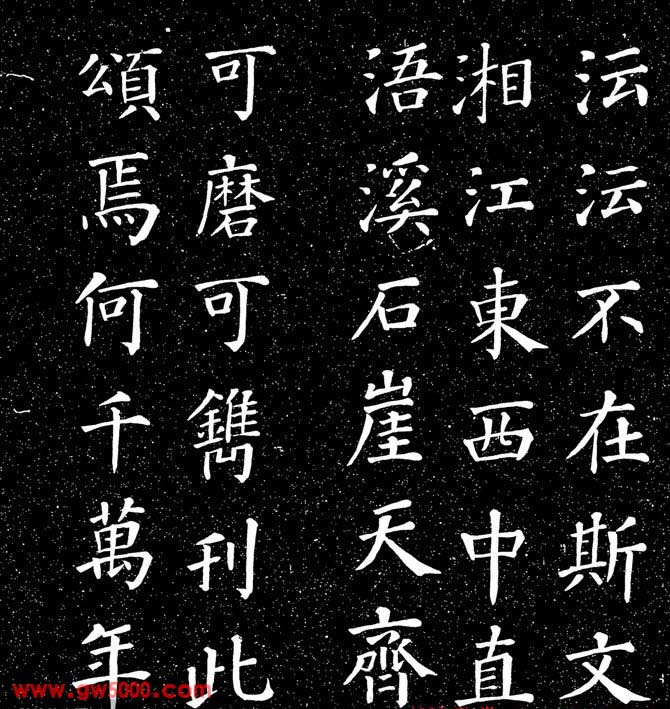 沄沄不在斯文
湘江東西中直
浯溪石崖天齊
可磨可鐫刊此
頌焉何千萬年
www.gw5000.com